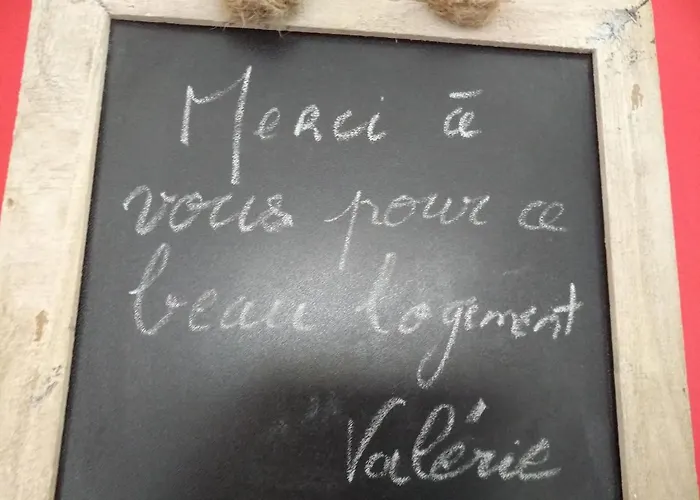 Merci à
vous pour ce
beau logement
Valérie